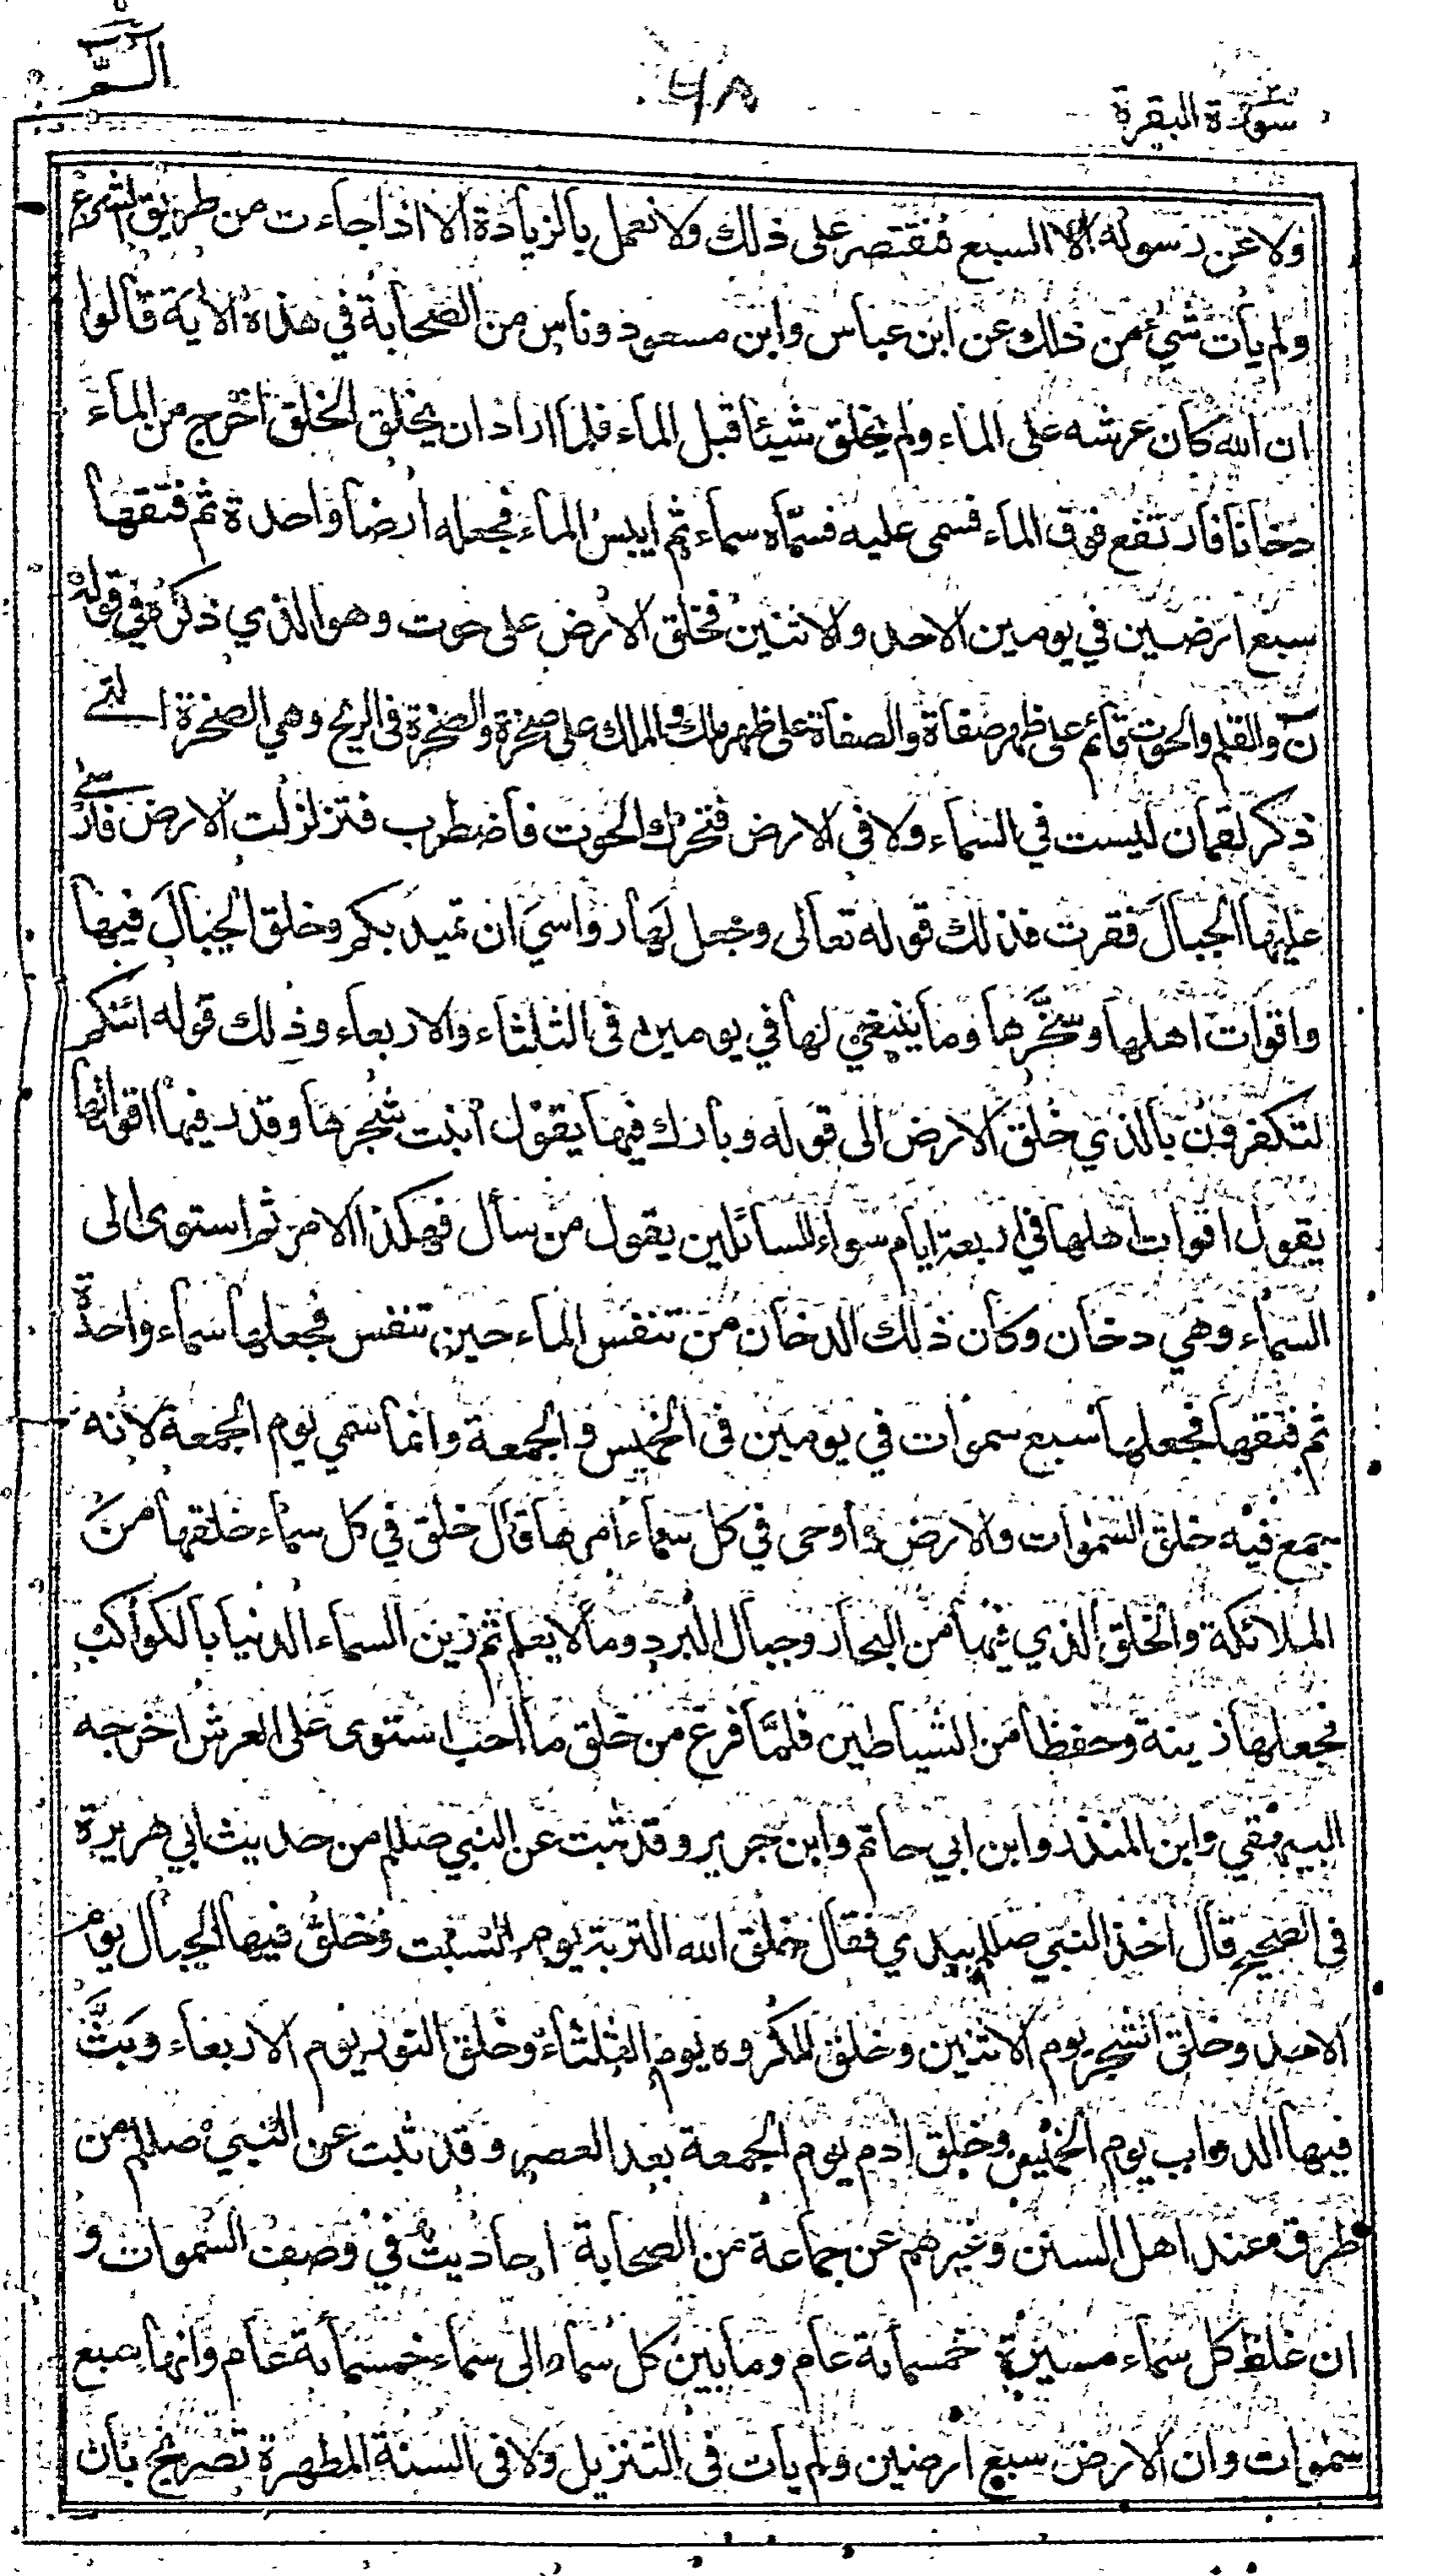 سورة البقرة
٦٨
الــمّ
ولا عن رسوله الا السبع فنقتصر على ذلك ولا نعمل بالزيادة الا اذا جاءت من طريق الشرع
ولم يأت شيء من ذلك عن ابن عباس وابن مسعود وناس من الصحابة في هذه الاية قالوا
ان الله كان عرشه على الماء ولم يخلق شيئا قبل الماء فلما اراد ان يخلق الخلق اخرج من الماء
دخانا فارتفع فوق الماء فسمى عليه فسمّاه سماء ثم ايبس الماء فجعله ارضا واحدة ثم فتقها
سبع ارضين في يومين الاحد والاثنين فخلق الارض على حوت وهو الذي ذكره في قوله
نٓ والقلم والحوت قائم على ظهر صفاة والصفاة على ظهر ملك والملك على صخرة والصخرة فى الريح وهي الصخرة التى
ذكر لقمان ليست في السماء ولا فى الارض فتحرك الحوت فاضطرب فتزلزلت الارض فارسى
عليها الجبال فقرت فذلك قوله تعالى وجعل لها رواسي ان تميد بكم وخلق الجبال فيها
واقوات اهلها وسخّرها وما ينبغي لها في يومين فى الثلثاء والاربعاء وذلك قوله ائنكم
لتكفرون بالذي خلق الارض الى قوله وبارك فيها يقول انبت شجرها وقدر فيها اقواتها
يقول اقوات اهلها في اربعة ايام سواء للسائلين يقول من سأل فهكذا الامر ثم استوى الى
السماء وهي دخان وكان ذلك الدخان من تنفس الماء حين تنفس فجعلها سماء واحدة
ثم فتقها فجعلها سبع سموات في يومين فى الخميس والجمعة وانما سمي يوم الجمعة لانه
جمع فيه خلق السموات والارض واوحى في كل سماء امرها قال خلق في كل سماء خلقها من
الملائكة والخلق الذي فيها من البحار وجبال البرد وما لا يعلم ثم زين السماء الدنيا بالكواكب
فجعلها زينة وحفظا من الشياطين فلمّا فرغ من خلق ما احب استوى على العرش اخرجه
البيهقي وابن المنذر وابن ابي حاتم وابن جرير وقد ثبت عن النبي صللم من حديث ابي هريرة
فى الصحيح قال اخذ النبي صللم بيدي فقال خلق الله التربة يوم السبت وخلق فيها الجبال يوم
الاحد وخلق الشجر يوم الاثنين وخلق المكروه يوم الثلثاء وخلق النور يوم الاربعاء وبثّ
فيها الدواب يوم الخميس وخلق ادم يوم الجمعة بعد العصر وقد ثبت عن النبي صللم من
طرق عند اهل السنن وغيرهم عن جماعة من الصحابة احاديث في وصف السموات و
ان غلظ كل سماء مسيرة خمسمائة عام وما بين كل سماء الى سماء خمسمائة عام وانها سبع
سموات وان الارض سبع ارضين ولم يأت فى التنزيل ولا فى السنة المطهرة تصريح بان